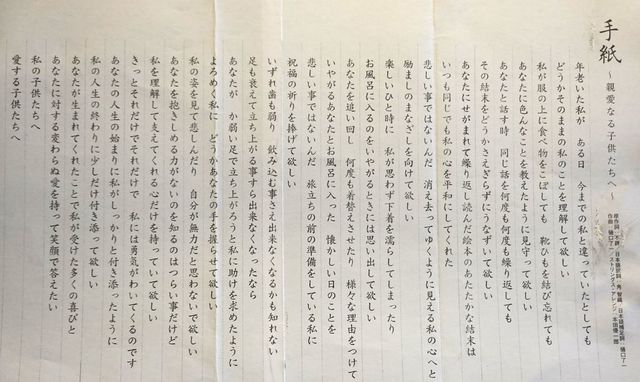 手紙 〜親愛なる子供たちへ〜
原作詞:不詳/日本語訳詞:角 智織/日本語補足詞:樋口了一
作曲:樋口了一/ストリングス・アレンジ:本田優一郎
年老いた私が ある日 今までの私と違っていたとしても
どうかそのままの私のことを理解して欲しい
私が服の上に食べ物をこぼしても 靴ひもを結び忘れても
あなたに色んなことを教えたように見守って欲しい
あなたと話す時 同じ話を何度も何度も繰り返しても
その結末をどうかさえぎらずにうなずいて欲しい
あなたにせがまれて繰り返し読んだ絵本のあたたかな結末は
いつも同じでも私の心を平和にしてくれた
悲しい事ではないんだ 消え去ってゆくように見える私の心へと
励ましのまなざしを向けて欲しい
楽しいひと時に 私が思わず下着を濡らしてしまったり
お風呂に入るのをいやがるときには思い出して欲しい
あなたを追い回し 何度も着替えさせたり 様々な理由をつけて
いやがるあなたとお風呂に入った 懐かしい日のことを
悲しい事ではないんだ 旅立ちの前の準備をしている私に
祝福の祈りを捧げて欲しい
いずれ歯も弱り 飲み込む事さえ出来なくなるかも知れない
足も衰えて立ち上がる事すら出来なくなったなら
あなたが か弱い足で立ち上がろうと私に助けを求めたように
よろめく私に どうかあなたの手を握らせて欲しい
私の姿を見て悲しんだり 自分が無力だと思わないで欲しい
あなたを抱きしめる力がないのを知るのはつらい事だけど
私を理解して支えてくれる心だけを持っていて欲しい
きっとそれだけでそれだけで 私には勇気がわいてくるのです
あなたの人生の始まりに私がしっかりと付き添ったように
私の人生の終わりに少しだけ付き添って欲しい
あなたが生まれてくれたことで私が受けた多くの喜びと
あなたに対する変わらぬ愛を持って笑顔で答えたい
私の子供たちへ
愛する子供たちへ